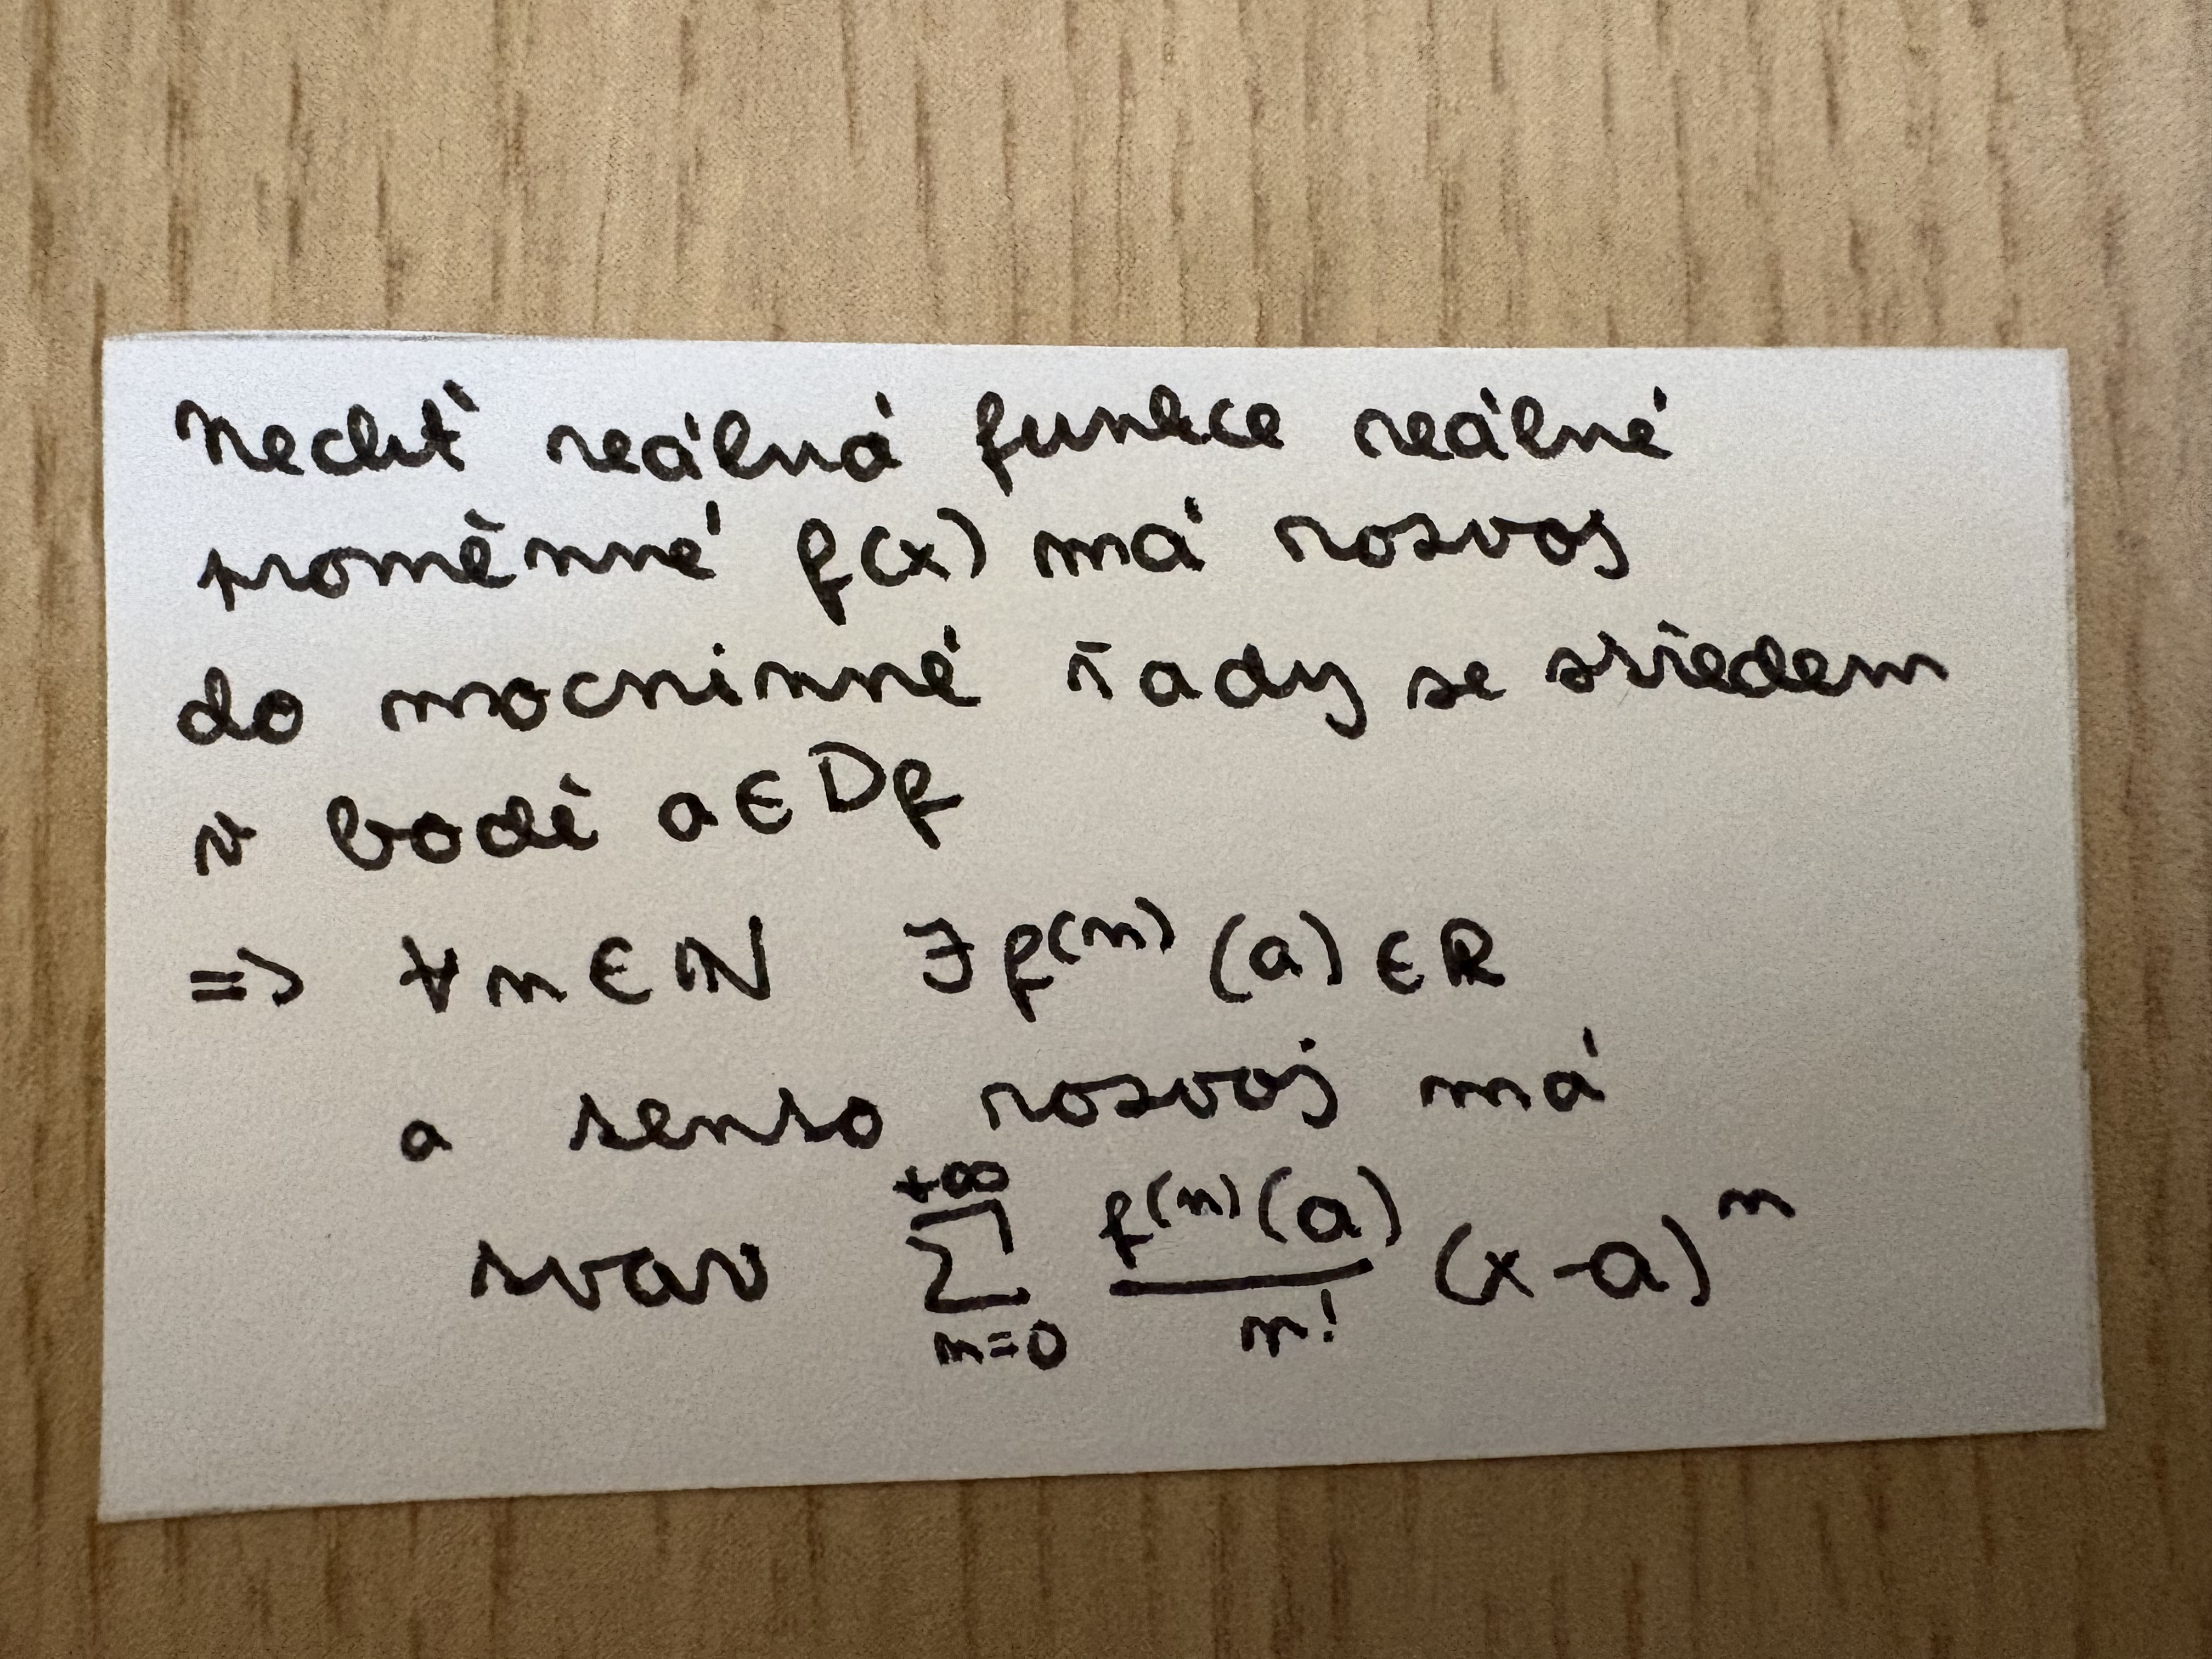 Nechť reálná funkce reálné
proměnné f(x) má rozvoj
do mocninné řady se středem
v bodě a ∈ Df
=> ∀n ∈ ℕ ∃ f⁽ⁿ⁾(a) ∈ ℝ
a tento rozvoj má
tvar \sum_{n=0}^{+\infty} \frac{f^{(n)}(a)}{n!} (x-a)^n